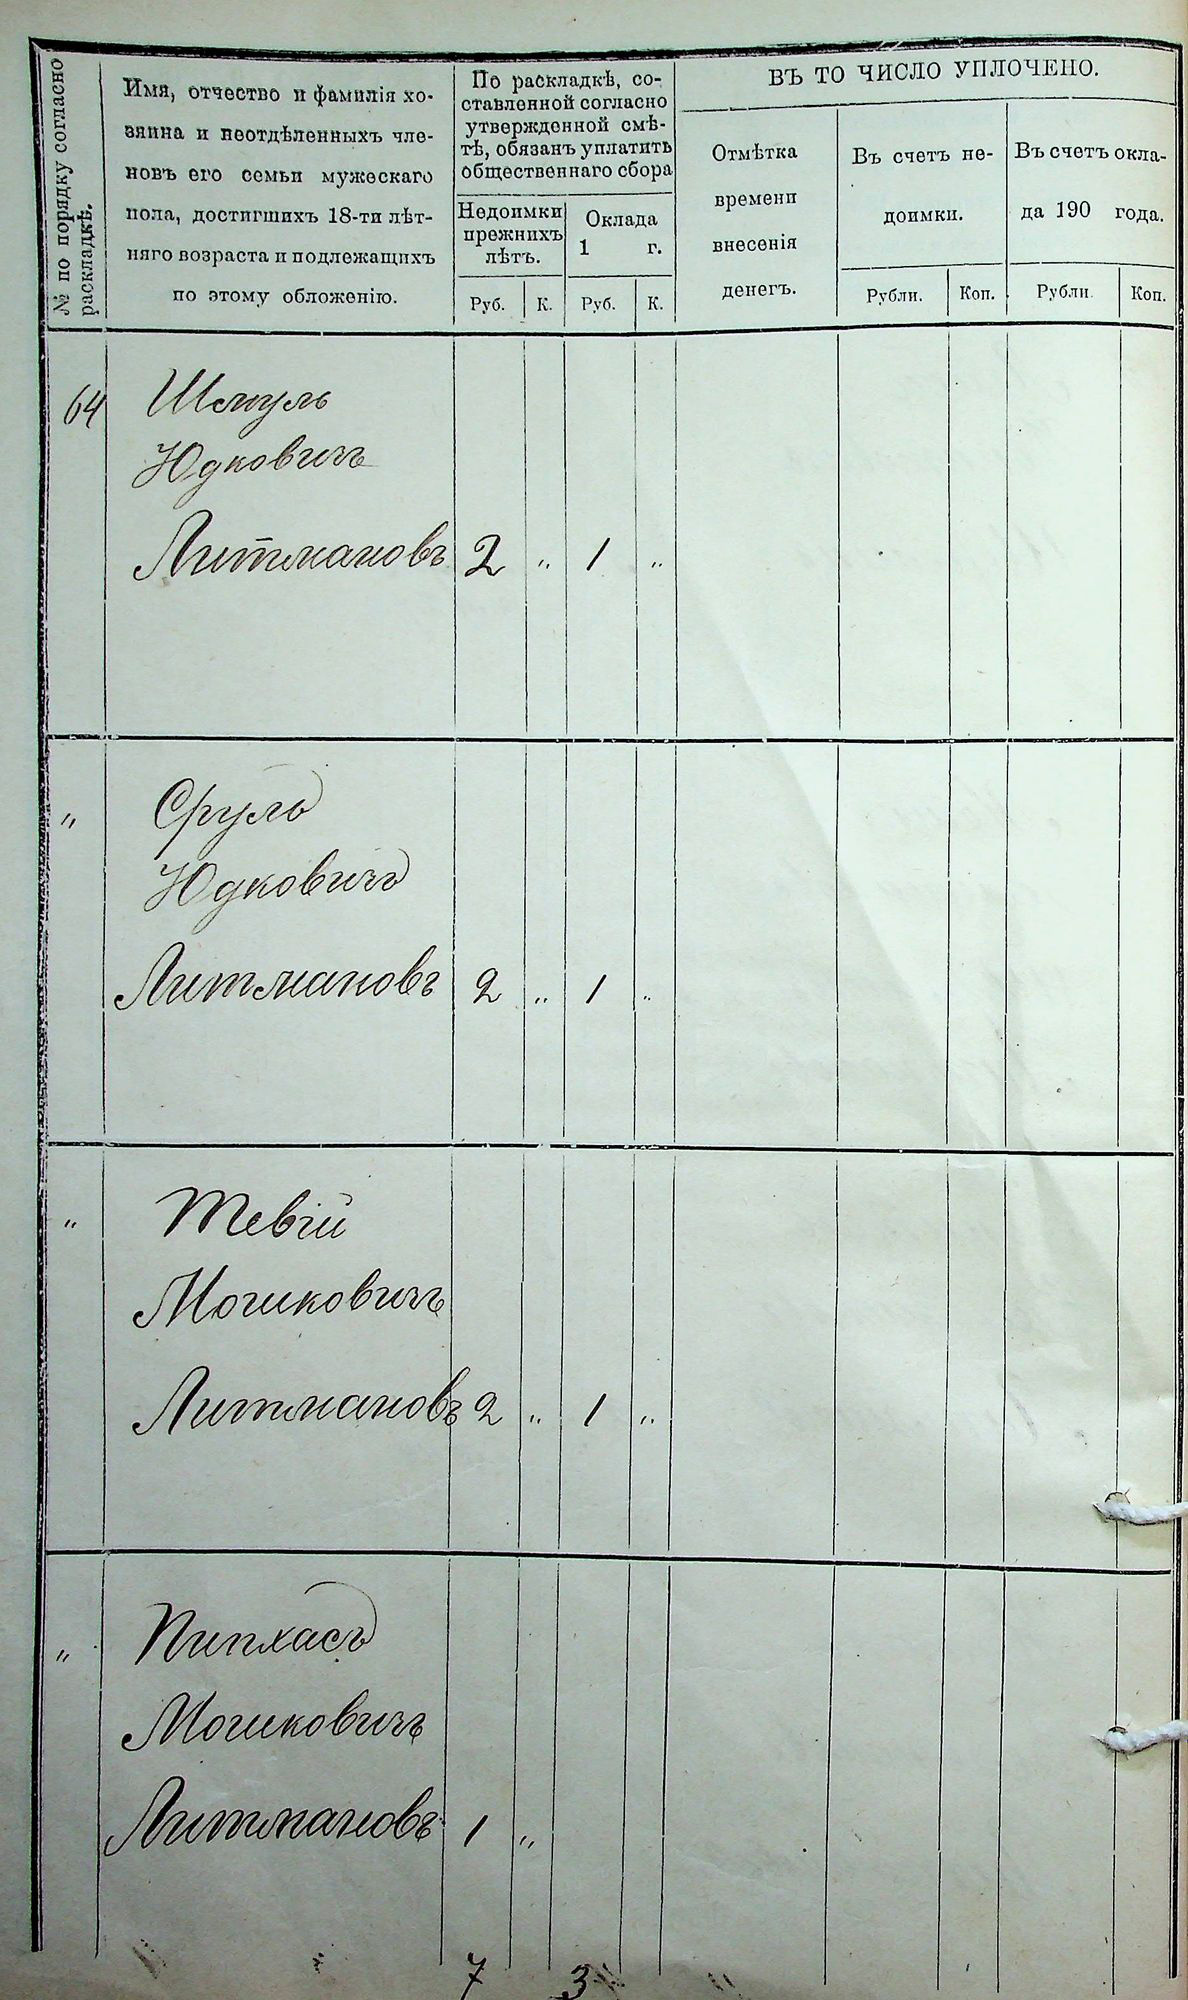 № по порядку согласно
раскладкѣ.
Имя, отчество и фамилія хо-
зяина и неотдѣленныхъ чле-
новъ его семьи мужескаго
пола, достигшихъ 18-ти лѣт-
няго возраста и подлежащихъ
по этому обложенію.
По раскладкѣ, со-
ставленной согласно
утвержденной смѣ-
тѣ, обязанъ уплатить
общественнаго сбора
Недоимки
прежнихъ
лѣтъ.
Оклада
1 г.
Руб. К. Руб. К.
ВЪ ТО ЧИСЛО УПЛОЧЕНО.
Отмѣтка
времени
внесенія
денегъ.
Въ счетъ не-
доимки.
Въ счетъ окла-
да 190 года.
Рубли. Коп. Рубли. Коп.
64 Шмуль
Юдковичъ
Литмановъ 2 „ 1 „
„ Сруль
Юдковичъ
Литмановъ 2 „ 1 „
„ Тевій
Мошковичъ
Литмановъ 2 „ 1 „
„ Пинхасъ
Мошковичъ
Литмановъ 1 „
7 3